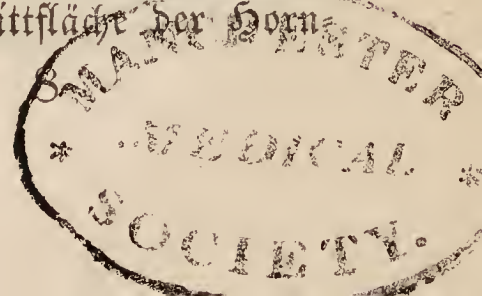 ittfläche der Horn-
8
MANCHESTER
* MEDICAL *
SOCIETY.